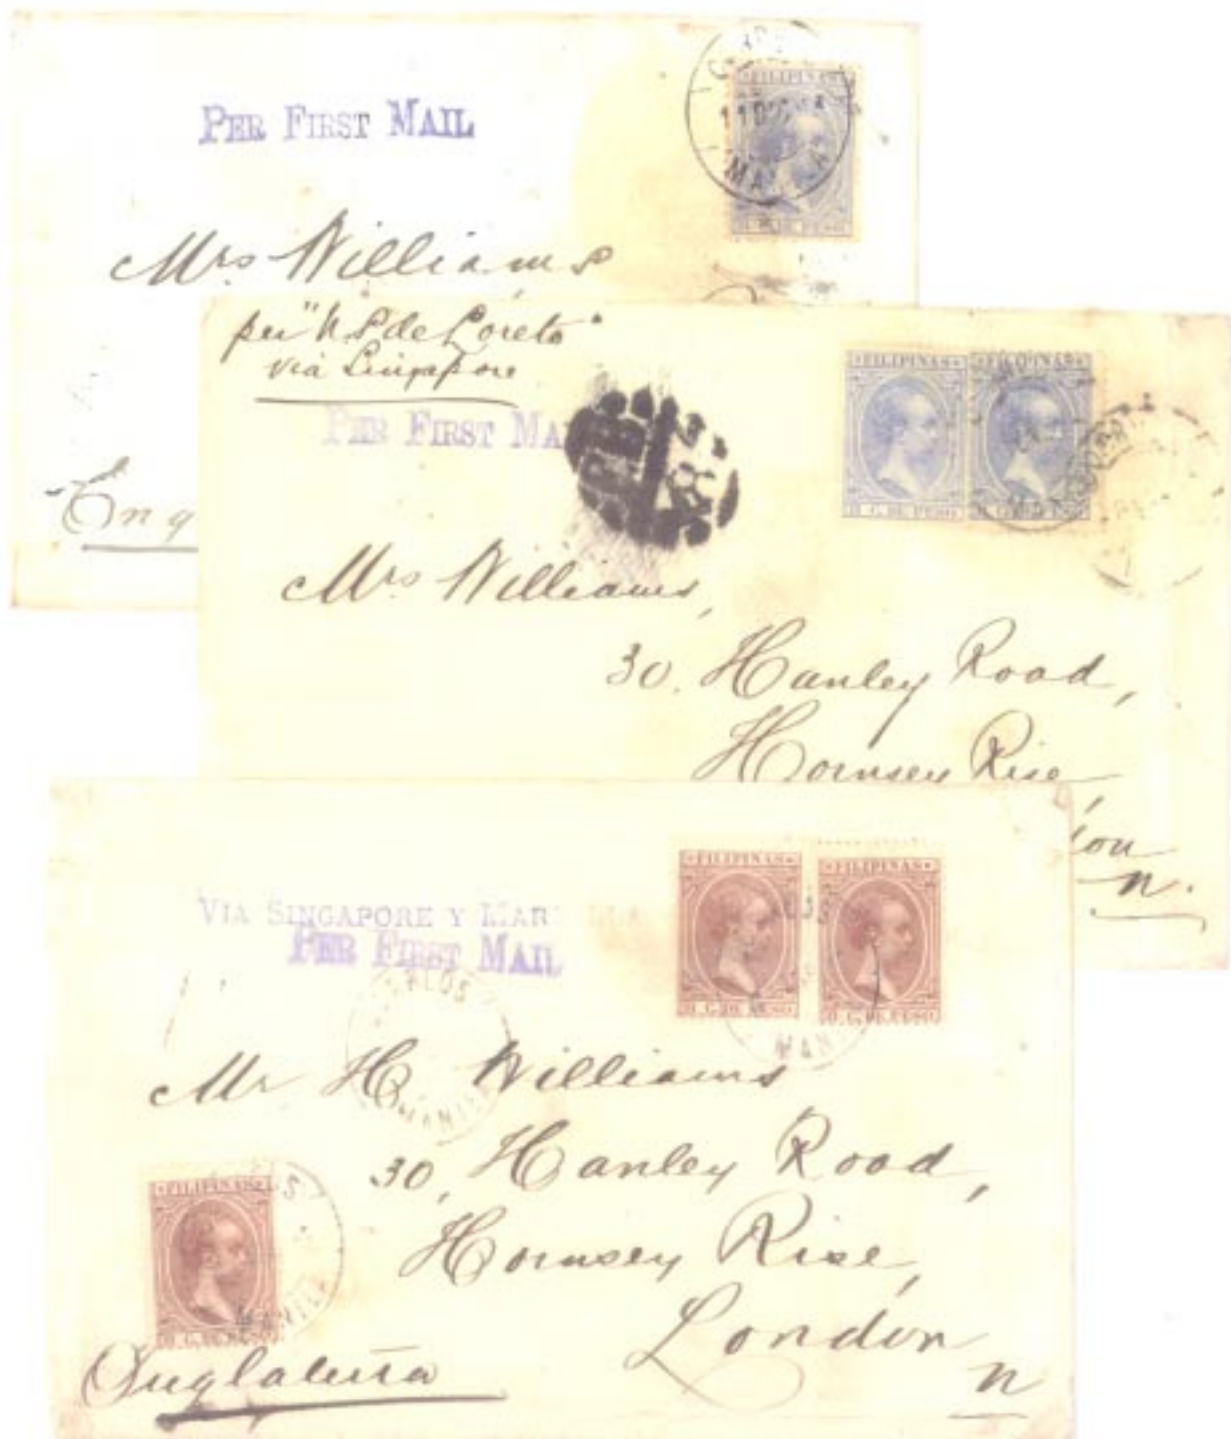 PER FIRST MAIL
FILIPINAS
MANILA
DE PESO
Mrs Williams
Eng
per "N. S. de Loreto"
via Singapore
PER FIRST MA
FILIPINAS FILIPINAS
DE PESO
Mrs Williams,
30, Hanley Road,
Hornsey Rise
N.
VIA SINGAPORE Y MAR
PER FIRST MAIL
FILIPINAS FILIPINAS
DE PESO DE PESO
MANILA
Mr H. Williams
30, Hanley Road,
Hornsey Rise,
London
N
FILIPINAS
MANILA
DE PESO
Inglaterra